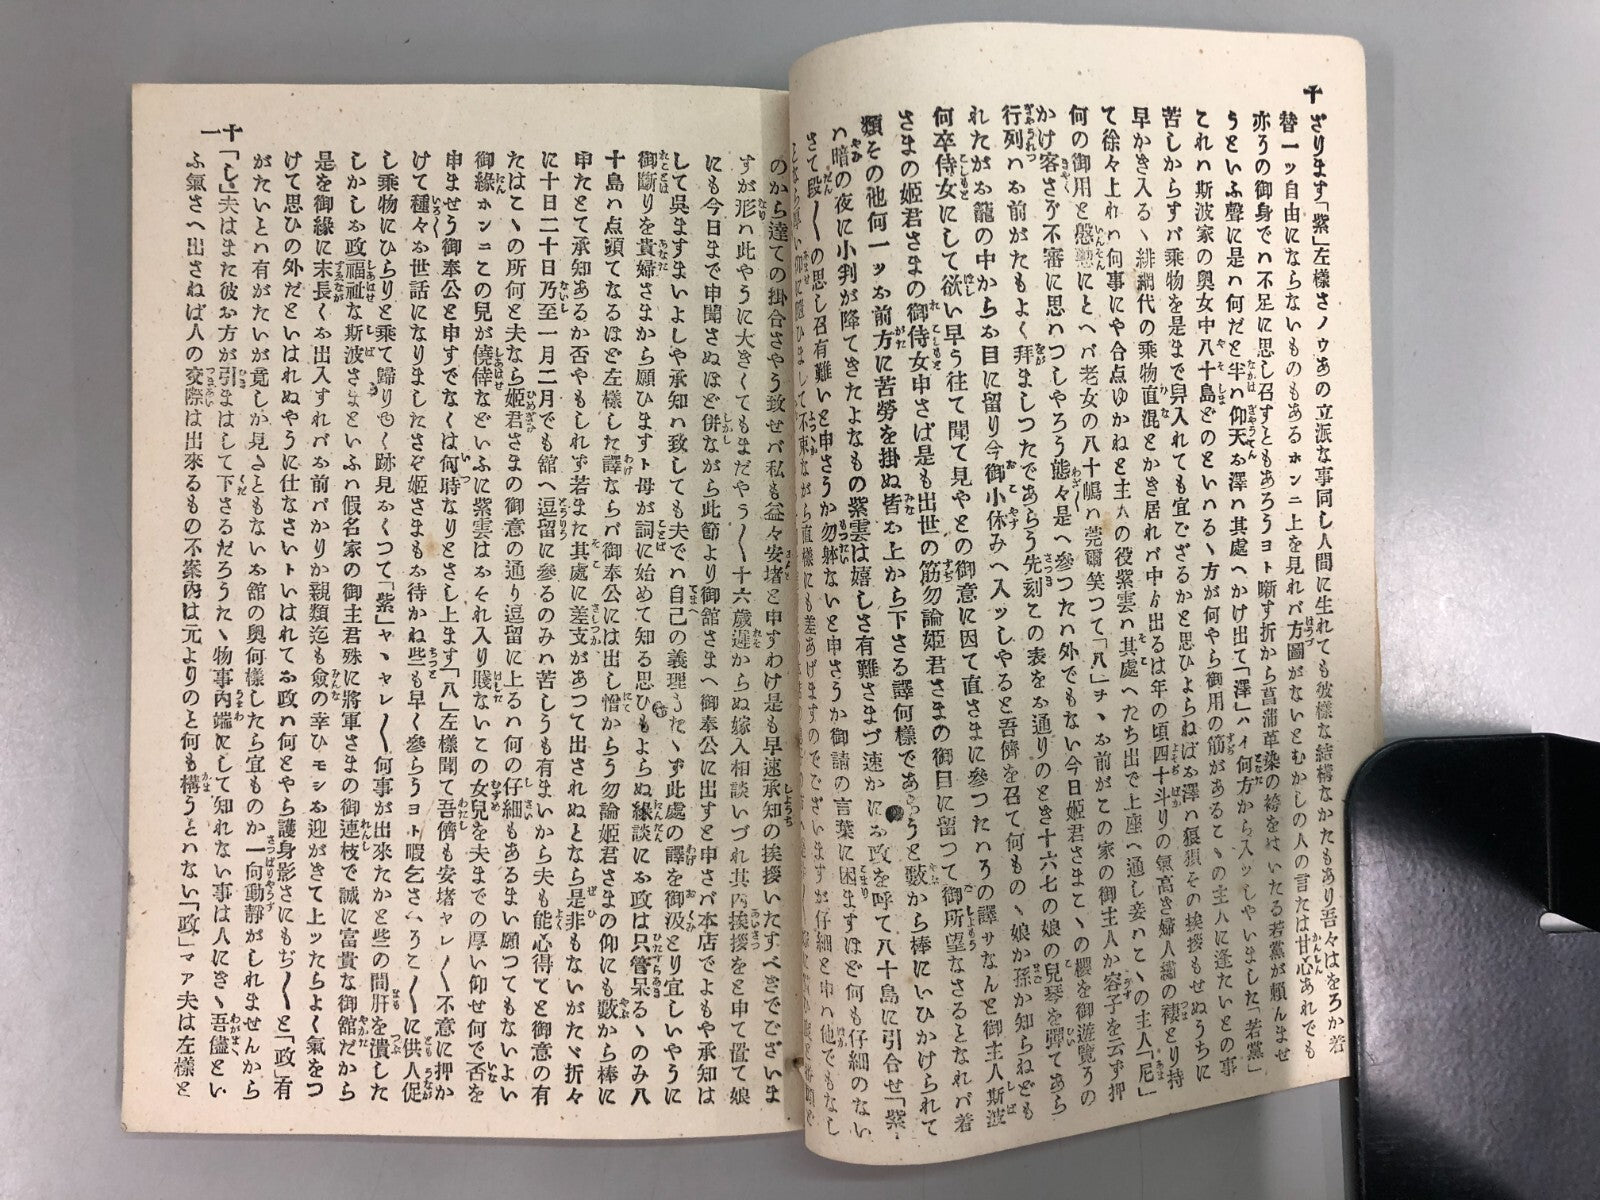 十
ざります「紫」左樣さノウあの立派な事同し人間に生れても彼樣な結構なかたもあり吾々はをろか着
替一ッ自由にならないものもあるホンニ上を見れバ方圖がないとむかしの人の言たは甘心あれでも
亦うの御身でハ不足に思し召すともあろうヨト噺す折から菖蒲革染の袴をはいたる若黨が頼んませ
うといふ聲に是ハ何だと半ハ仰天お澤ハ其處へかけ出て「澤」ハイ何方から入ッしやいました「若黨」
これハ斯波家の奥女中八十島どのといハるゝ方が何やら御用の筋があるこゝの主人に逢たいとの事
苦しからずバ乘物を是まで舁入れても宜ござるかと思ひよらねばお澤ハ狼狽その挨拶もせぬうちに
早かき入るゝ緋網代の乘物直混とかき居れバ中から出るは年の頃四十斗りの氣高き婦人裲の褄とり持
て徐々上れハ何事にや合点ゆかねと主人の役紫雲ハ其處へたち出で上座へ通し妾ハこゝの主人「尼」
何の御用と慇懃にとへバ老女の八十嶋ハ莞爾笑つて「八」ヲヽお前がこの家の御主人か容子を云ず押
かけ客さぞ不審に思ハつしやろう態々是へ參つたハ外でもない今日姫君さまこゝの櫻を御遊覽うの
行列ハお前がたもよく拜ましつたであらう先刻この表をお通りのとき十六七の娘の兒琴を彈てあら
れたがお籠の中からお目に留り今御小休みへ入ッしやると吾儕を召て何ものゝ娘か孫か知らねども
何卒侍女にして欲い早う往て聞て見やとの御意に因て直さまに參つたハろの譯サなんと御主人斯波
さまの姫君さまの御侍女申さば是も出世の筋勿論姫君さまの御目に留つて御所望なさるとなれバ着
類その他何一ッお前方に苦勞を掛ぬ皆お上から下さる譯何樣であらうと藪から棒にいひかけられて
ハ暗の夜に小判が降てきたよなもの紫雲は嬉しさ有難さまづ速かにお政を呼て八十島に引合せ「紫」
さて段〱の思し召有難いと申さうか勿躰ないと申さうか御請の言葉に困ますほど何も仔細のない
のから達ての掛合さやう致せバ私も益々安堵と申すわけ是も早速承知の挨拶いたすべきでございま
すが形ハ此やうに大きくてもまだやう〱十六歳遲からぬ嫁入相談いづれ其内挨拶をと申て置て娘
にも今日まで申聞さぬほど併ながら此節より御舘さまへ御奉公に出すと申さバ本店でよもや承知は
して呉ますまいよしや承知ハ致しても夫でハ自己の義理もたゝず此處の譯を御汲とり宜しいやうに
御斷りを貴婦さまから願ひますト母が詞に始めて知る思ひもよらぬ縁談にお政は只管呆るゝのみ八
十島ハ点頭てなるほど左樣した譯ならバ御奉公には出し憎からう勿論姫君さまの仰にも藪から棒に
申たとて承知あるか否やもしれず若また其處に差支があつて出されぬとなら是非もないがたゞ折々
に十日二十日乃至一月二月でも舘へ逗留に參るのみハ苦しうも有まいから夫も能心得てと御意の有
たはこゝの所何と夫なら姫君さまの御意の通り逗留に上るハ何の仔細もあるまい願つてもないよい
御緣ホンニこの兒が僥倖などいふに紫雲はおそれ入り賤ないこの女兒を夫までの厚い仰せ何で否を
申ませう御奉公と申すでなくは何時なりとさし上ます「八」左樣聞て吾儕も安堵ヤレ〱不意に押か
けて種々お世話になりましたさぞ姫さまもお待かね些も早く參らうヨト暇乞さへろこ〱に供人促
し乘物にひらりと乘て歸りゆく跡見おくつて「紫」ヤヽヤレ〱何事が出來たかと些の間肝を潰した
しかしお政福祉な斯波さまといふハ假名家の御主君殊に將軍さまの御連枝で誠に富貴な御舘だから
是を御緣に末長くお出入すれバお前バかりか親類迄も僉の幸ひモシお迎がきて上ッたらよく氣をつ
けて思ひの外だといはれぬやうに仕なさいトいはれてお政ハ何とやら護身影さにもぢ〱と「政」有
がたいとハ有がたいが竟しか見さともないお舘の奥何樣したら宜ものか一向動靜がしれませんから
「し」夫はまた彼お方が引まはして下さるだろうたゝ物事内端にして知れない事は人にきゝ吾儘とい
ふ氣さへ出さねば人の交際は出來るもの不案内は元よりのと何も構うとハない「政」マア夫は左樣と
十一